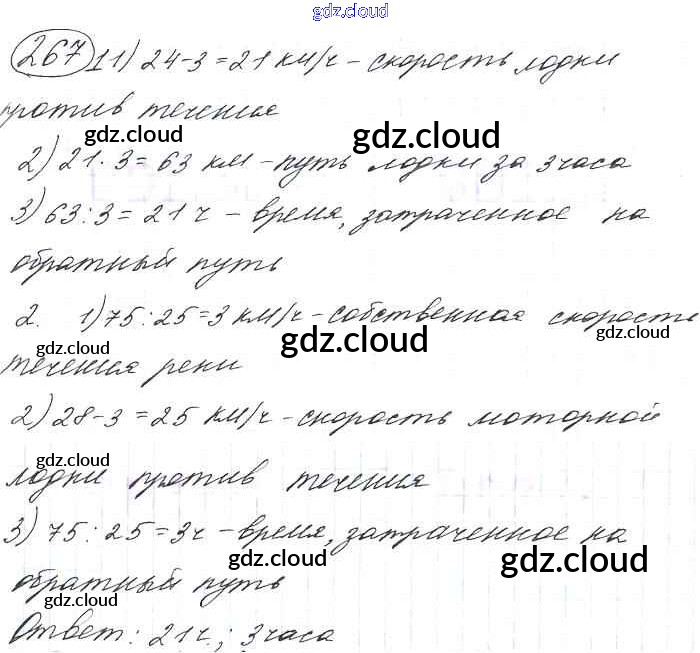 gdz.cloud
267 1 1) 24-3=21 км/ч - скорость лодки
против течения
gdz.cloud gdz.cloud
2) 21·3=63 км - путь лодки за 3 часа
3) 63:3=21 ч - время, затраченное на
обратный путь
2. 1) 75:25=3 км/ч - собственная скорость
gdz.cloud gdz.cloud gdz.cloud
течения реки
2) 28-3=25 км/ч - скорость моторной
gdz.cloud
лодки против течения
3) 75:25=3ч - время, затраченное на
gdz.cloud gdz.cloud
обратный путь
gdz.cloud
Ответ: 21ч.; 3 часа